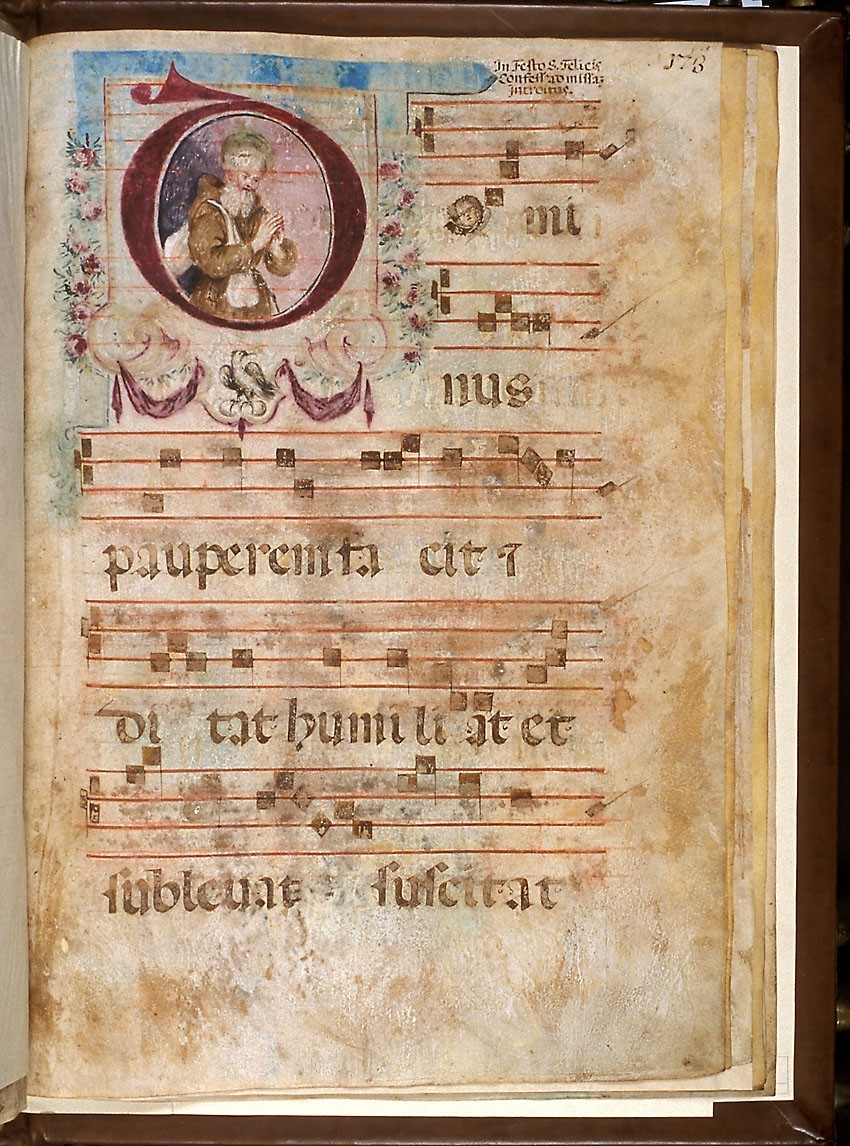 In Festo S. Felicis
Confess. ad missaz
Introitus.
178
D o mi
nus
pauperem fa cit ⁊
di tat humili at et
sublevat suscitat